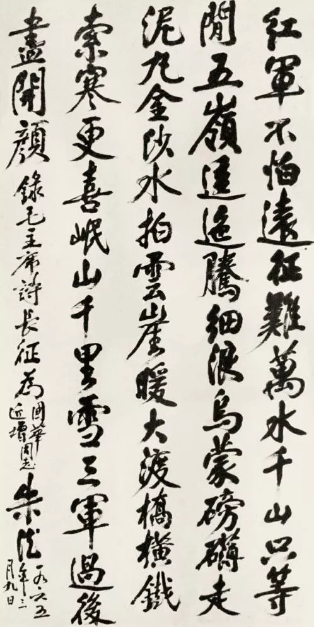 紅軍不怕遠征難萬水千山只等
閒五嶺逶迤騰細浪烏蒙磅礴走
泥丸金沙水拍雲崖暖大渡橋橫鐵
索寒更喜岷山千里雪三軍過後
盡開顏
錄毛主席詩長征為
國華
同志
朱德
一九六五
年三
月九日